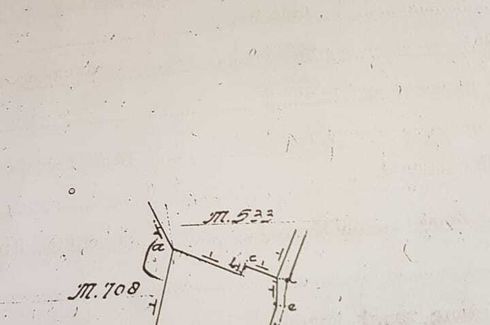 M.533
a
b
c
d
e
M.708